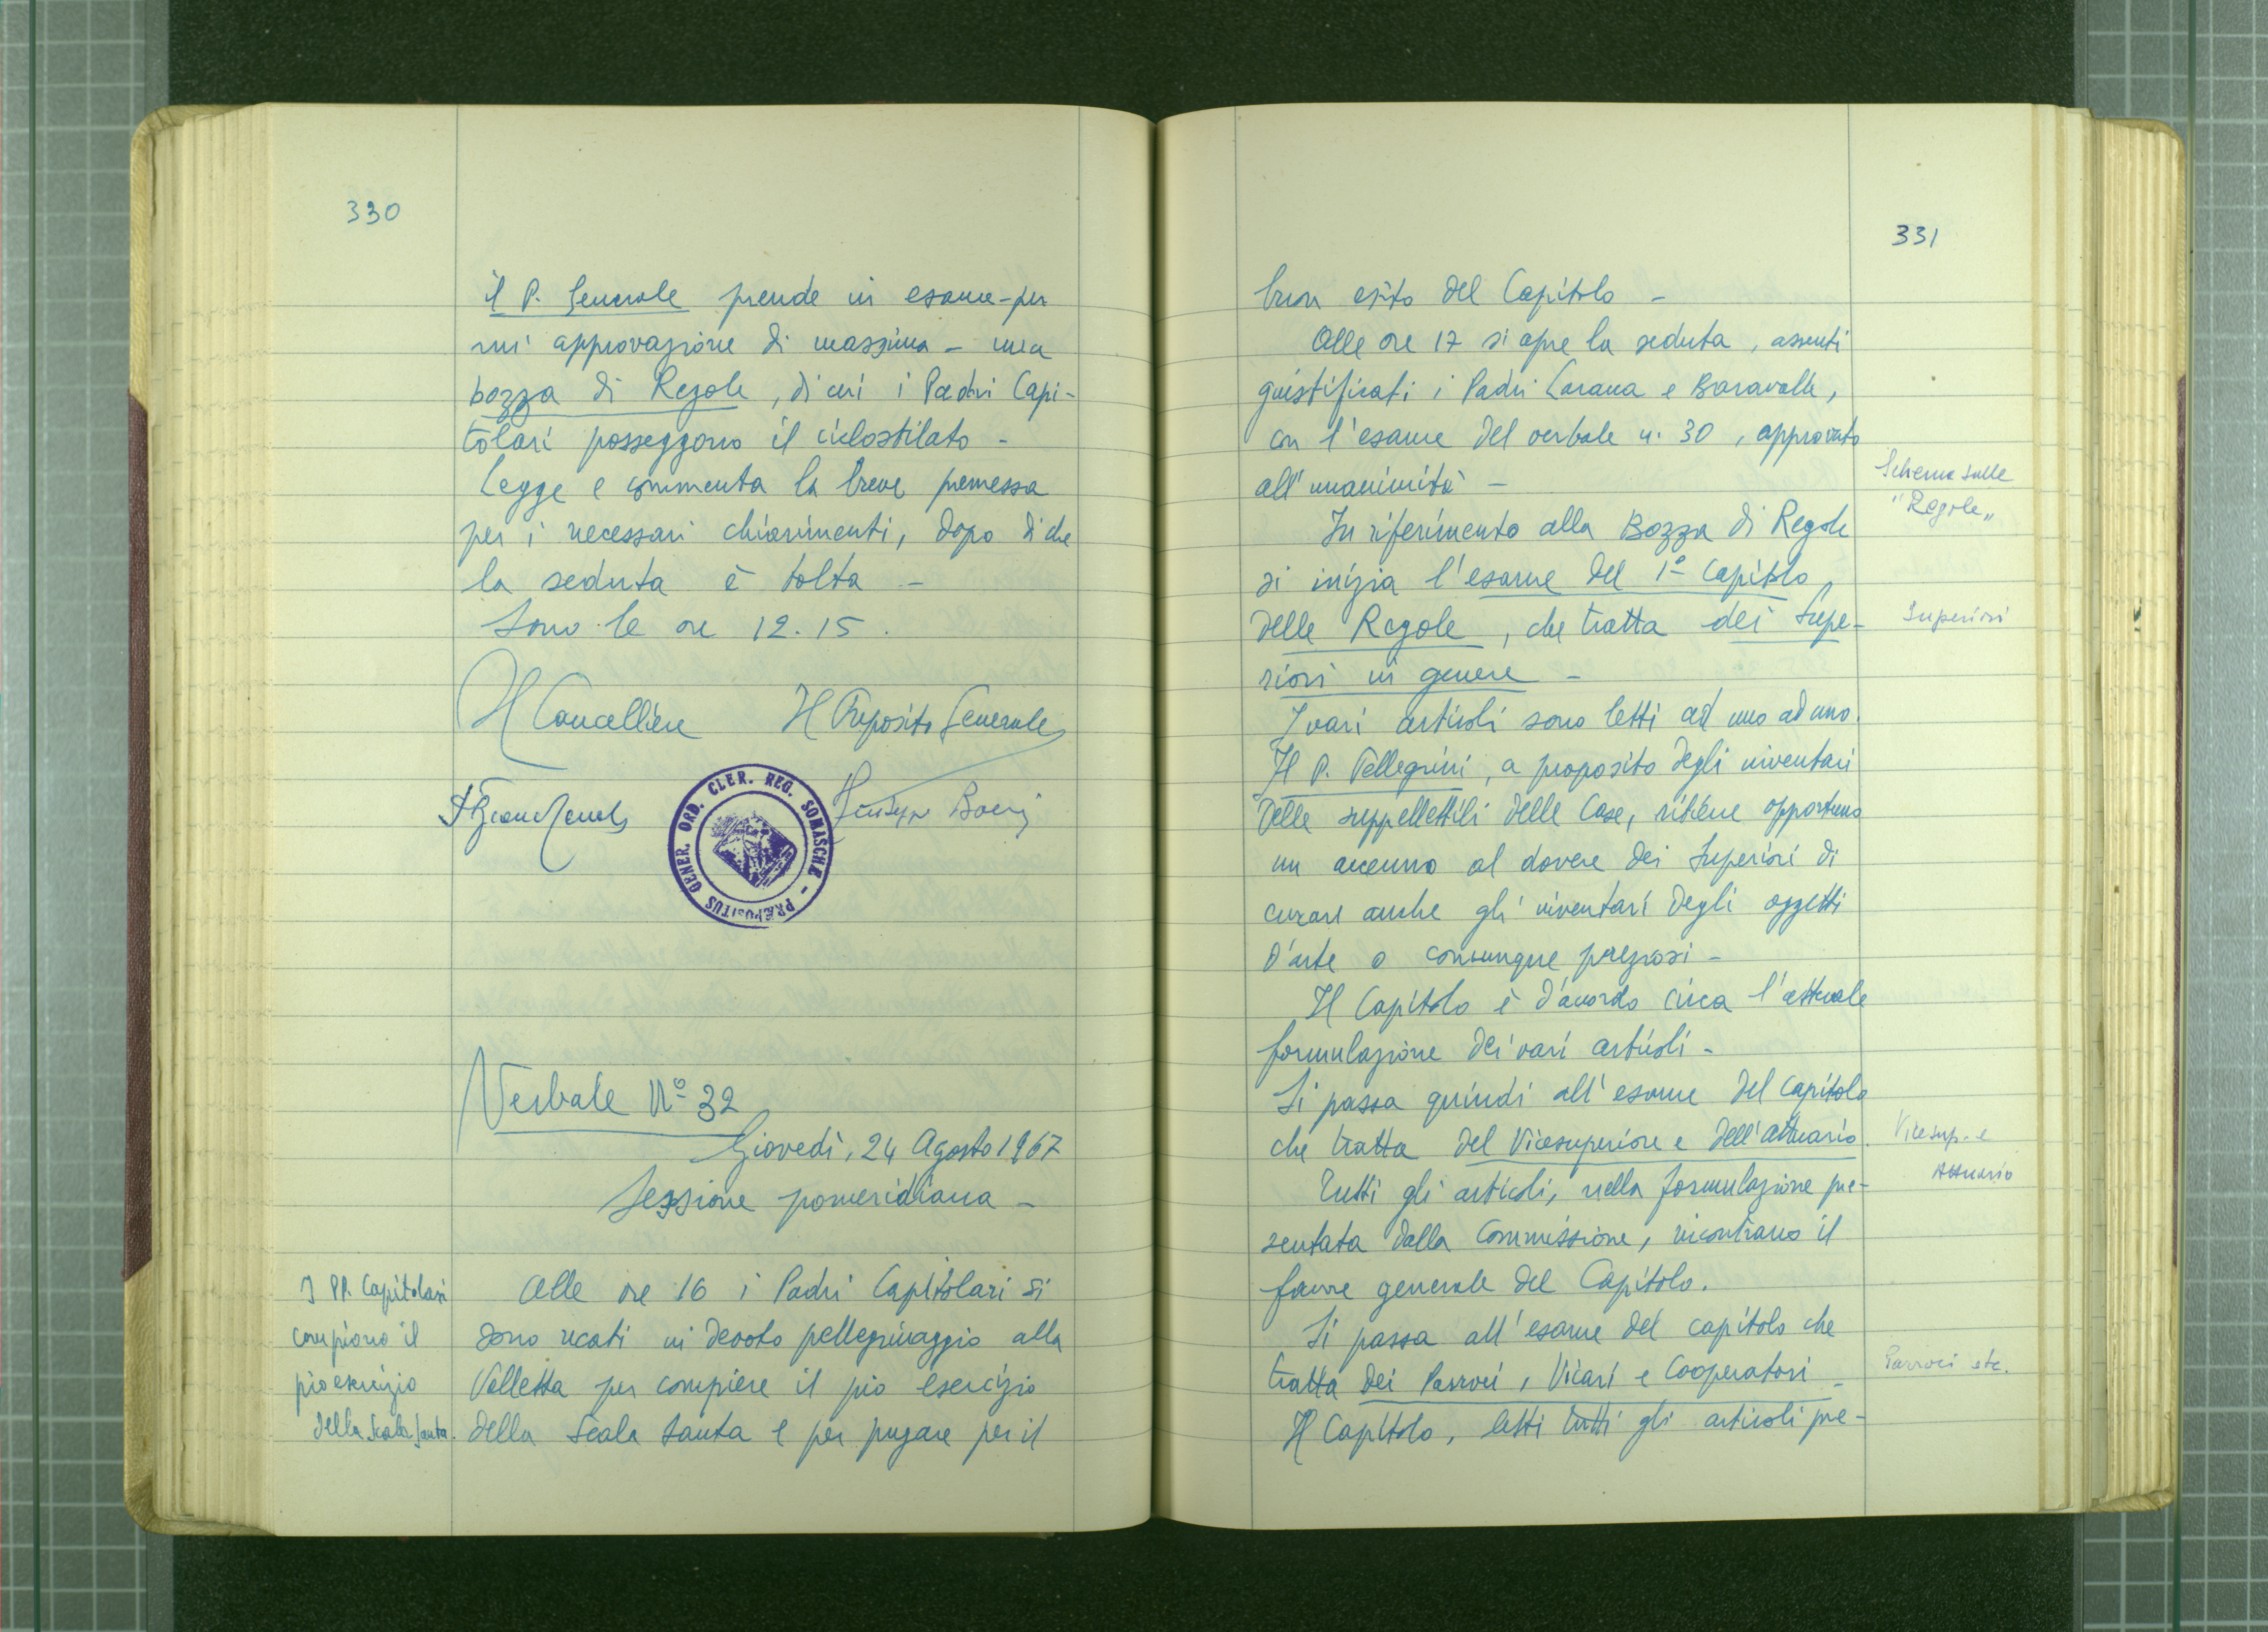 330
il P. Generale prende in esame - per
un'approvazione di massima - una
bozza di Regole, di cui i Padri Capi-
tolari posseggono il ciclostilato -
Legge e commenta la breve premessa
per i necessari chiarimenti, dopo di che
la seduta è tolta -
Sono le ore 12.15.
Il Cancelliere Il Preposito Generale
Giuseppe Boeri
PRÆPOSITUS GENER. ORD. CLER. REG. SOMASCHÆ -
Verbale N° 32
Giovedì, 24 Agosto 1967
Sessione pomeridiana -
I PP. Capitolari
compiono il
pio esercizio
della Scala Santa.
Alle ore 16 i Padri Capitolari si
sono recati in devoto pellegrinaggio alla
Valletta per compiere il pio esercizio
della Scala Santa e per pregare per il
331
buon esito del Capitolo -
Alle ore 17 si apre la seduta, assenti
giustificati i Padri e Baravalle,
con l'esame del verbale n. 30, approvato
all'unanimità -
Schema sulle
"Regole"
In riferimento alla Bozza di Regole
si inizia l'esame del 1° Capitolo
delle Regole, che tratta dei Supe-
riori in genere -
Superiori
I vari articoli sono letti ad uno ad uno.
Il P. Pellegrini, a proposito degli inventari
delle suppellettili delle Case, ritiene opportuno
un accenno al dovere dei Superiori di
curare anche gli inventari degli oggetti
d'arte o comunque preziosi -
Il Capitolo è d'accordo circa l'attuale
formulazione dei vari articoli -
Si passa quindi all'esame del capitolo
che tratta del Vicesuperiore e dell'attuario.
Vicesup. e
Attuario
Tutti gli articoli, nella formulazione pre-
sentata dalla Commissione, incontrano il
favore generale del Capitolo.
Si passa all'esame del capitolo che
tratta dei Parroci, Vicari e Cooperatori -
Parroci etc.
Il Capitolo, letti tutti gli articoli pre-